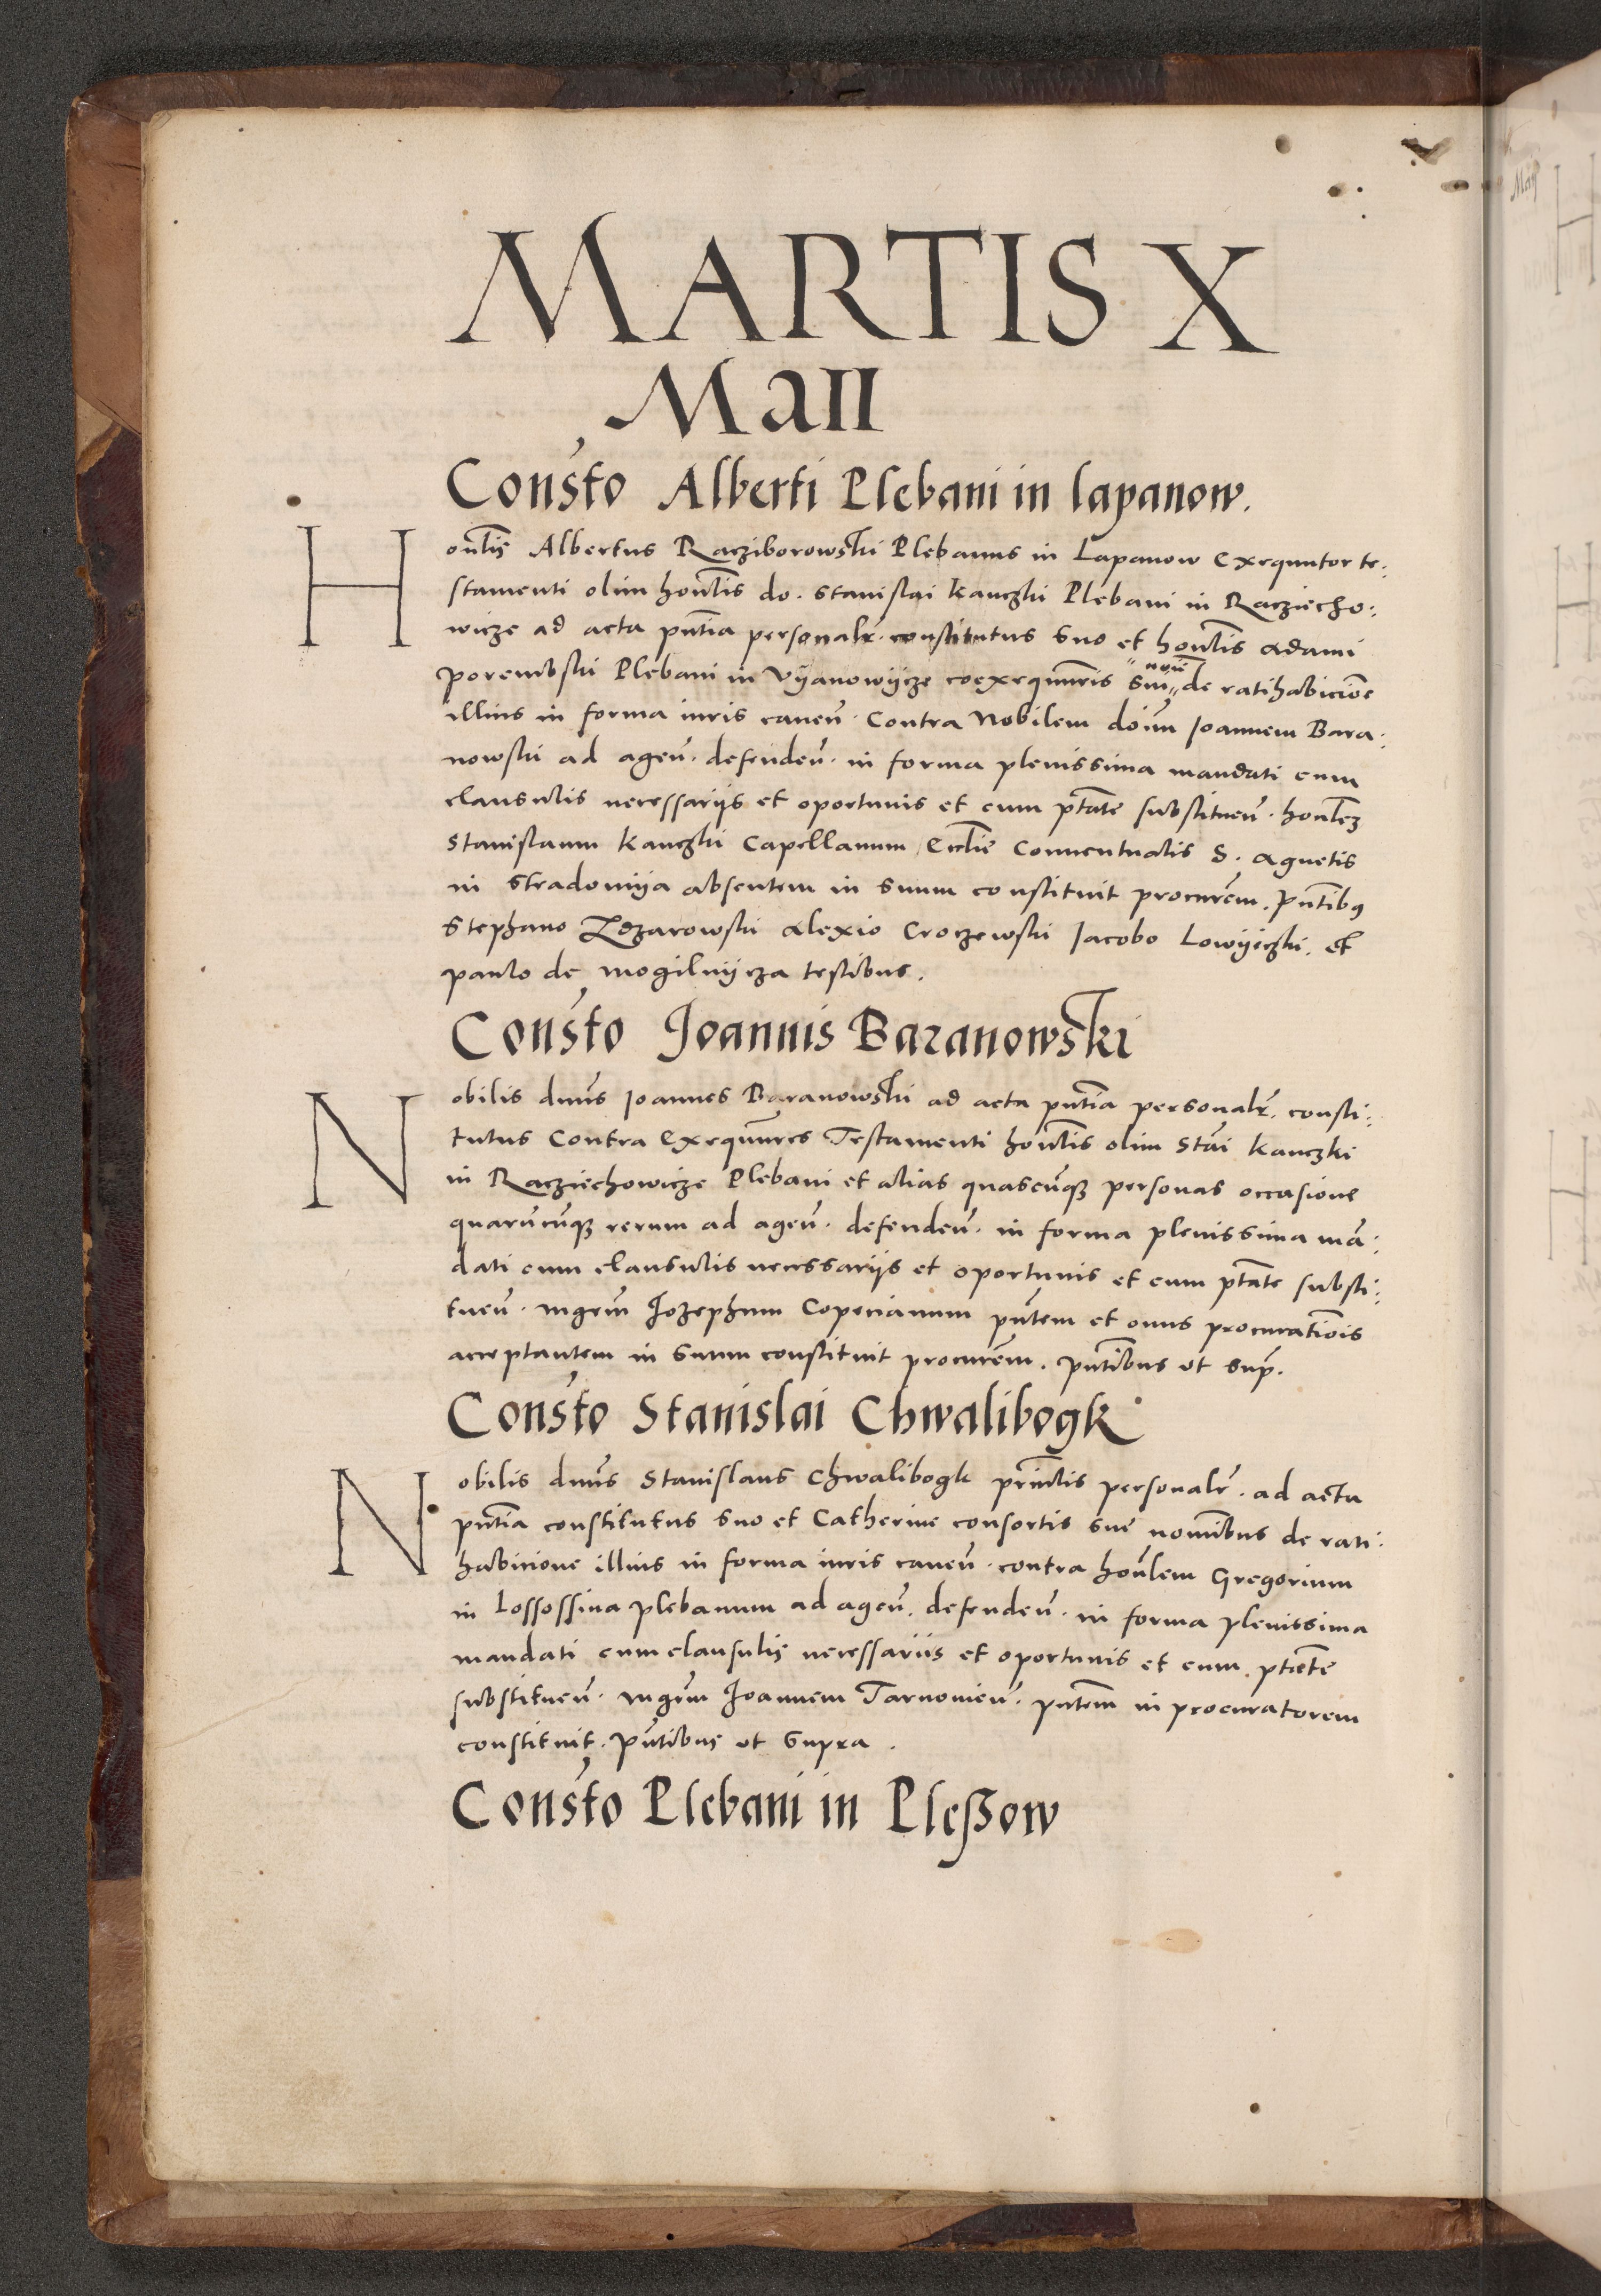 MARTIS X
MaII
Consto Alberti Plebani in lapanow.
Honlis Albertus Racziborowski Plebanus in Lapanow Exequutor te:
stamenti olim honlis do. Stanislai Kanczki Plebani in Racziecho:
wicze ad acta pntia personalr. constitutus suo et honlis Adami
Porembski Plebani in Vÿanowÿcze coexequutoris sui noie de ratihabicione
illius in forma iuris caven. Contra Nobilem doim Joannem Bara:
nowski ad agen. defenden. in forma plenissima mandati cum
clausulis necessarijs et oportunis et cum ptate substituen. honlez
Stanislaum Kanczki Capellanum Ecclie Conventualis S. Agnetis
in Stradomÿa absentem in suum constituit procurem. Pntibus
Stephano Zdzarowski Alexio Croczewski Jacobo Lowÿczki. et
Paulo de Mogilnÿcza testibus.
Consto Joannis Baranowski
Nobilis dnus Joannes Baranowski ad acta pntia personalr. consti:
tutus Contra Exequutores Testamenti honlis olim Stai Kanczki
in Racziechowicze Plebani et alias quascunqz personas occasione
quarucunqz rerum ad agen. defenden. in forma plenissima man:
dati cum clausulis necessarijs et oportunis et cum ptate substi:
tuen. mgrm Jozephum Copecianum pntem et onus procurationis
acceptantem in suum constituit procurem. Pntibus ut sup.
Consto Stanislai Chwalibogk
Nobilis dnus Stanislaus Chwalibogk princlis personalr. ad acta
pntia constitutus suo et Catherine consortis sue nominibus de rati:
habicione illius in forma iuris caven. contra honlem Gregorium
in Lossossina plebanum ad agen. defenden. in forma plenissima
mandati cum clausulis necessariis et oportunis et cum ptate
substituen. mgrm Joannem Tarnovien. pntem in procuratorem
constituit. Pntibus ut supra.
Consto Plebani in Pleßow